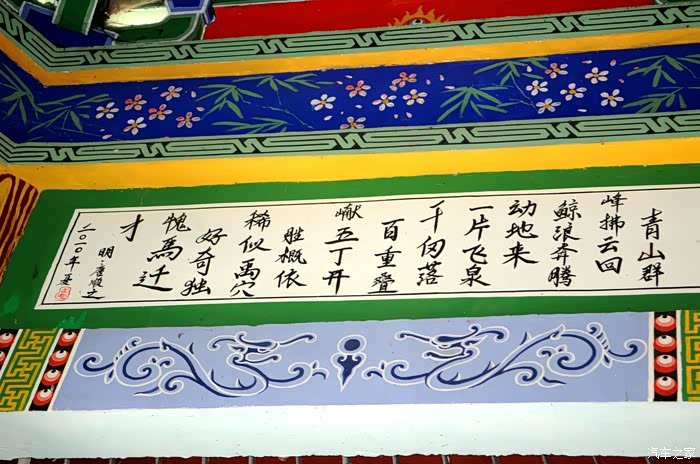 青山群
峰拂云回
鲸浪奔腾
动地来
一片飞泉
千仞落
百重叠
𪩘五丁开
胜概依
稀似禹穴
好奇独
愧馬迁
才
明·唐顺之
二〇一〇年夏
汽车之家